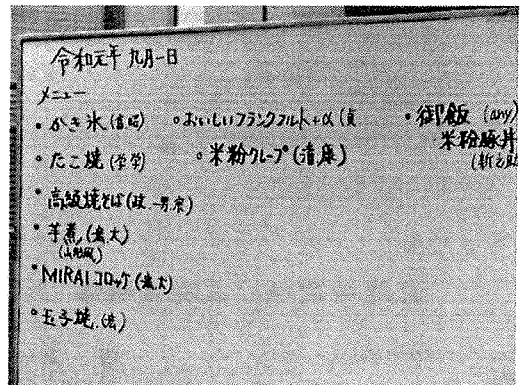 令和元年 九月一日
メニュー
・かき氷
・たこ焼
・高級焼そば
・芋煮
(山形風)
・MIRAIコロッケ
・玉子焼
・おいしいフランクフルト+α
・米粉クレープ
・御飯 (any)
米粉豚丼